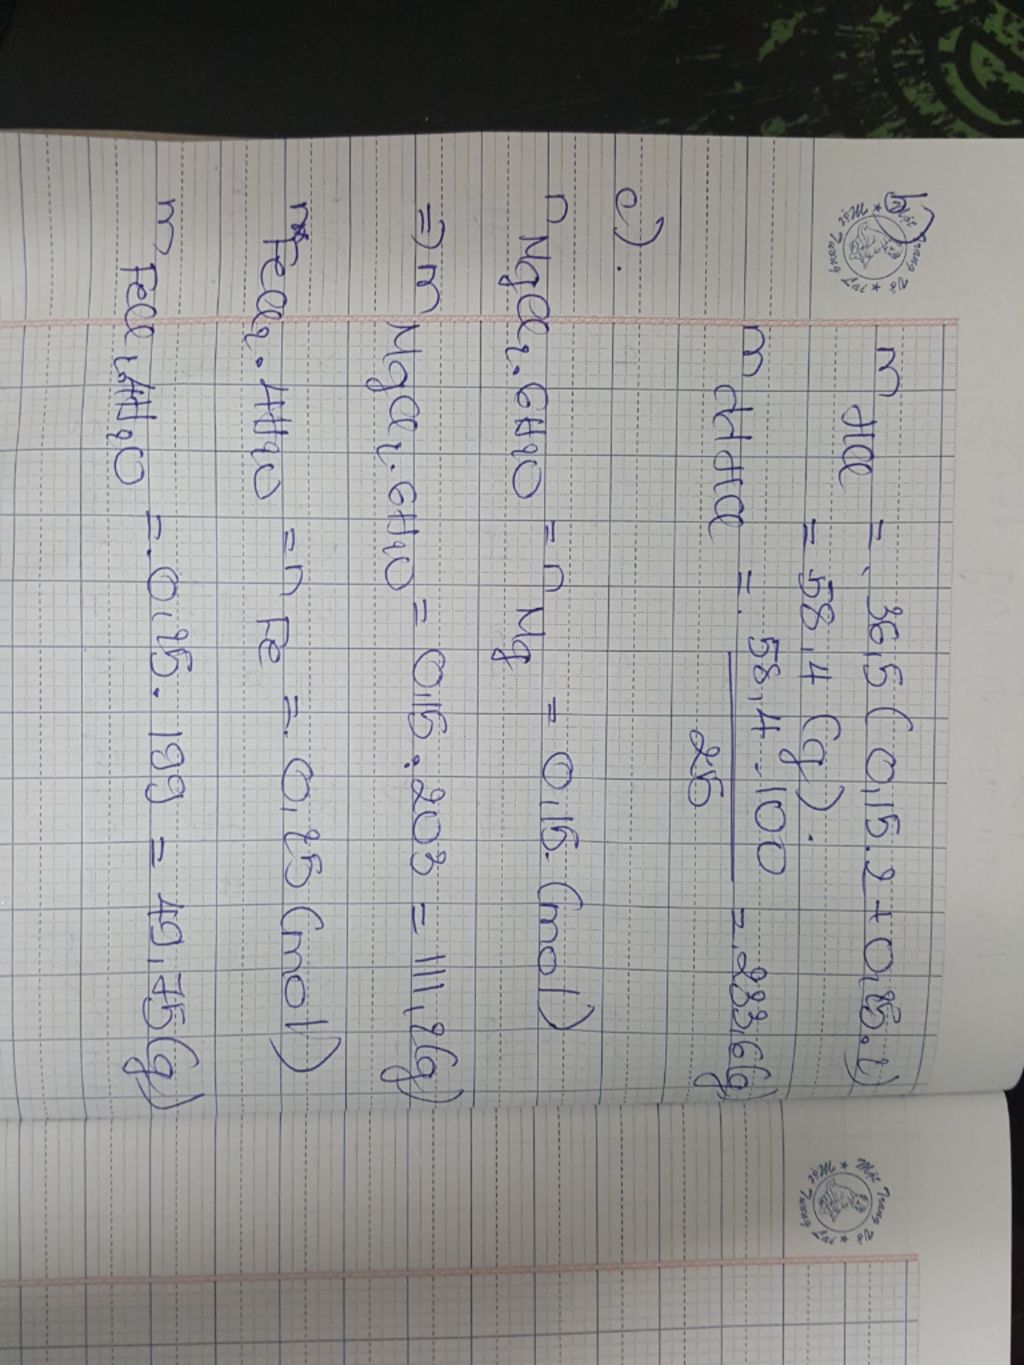 b)
m HCl = 36,5 (0,15.2 + 0,25.2)
= 58,4 (g).
m dd HCl = 58,4.100 / 25 = 233,6(g)
c).
n MgCl2.6H2O = n Mg = 0,15 (mol)
=> m MgCl2.6H2O = 0,15.203 = 111,2(g)
FeCl2.4H2O = n Fe = 0,25 (mol)
m FeCl2.4H2O = 0,25.199 = 49,75(g)
Mật Trung Tường Vi